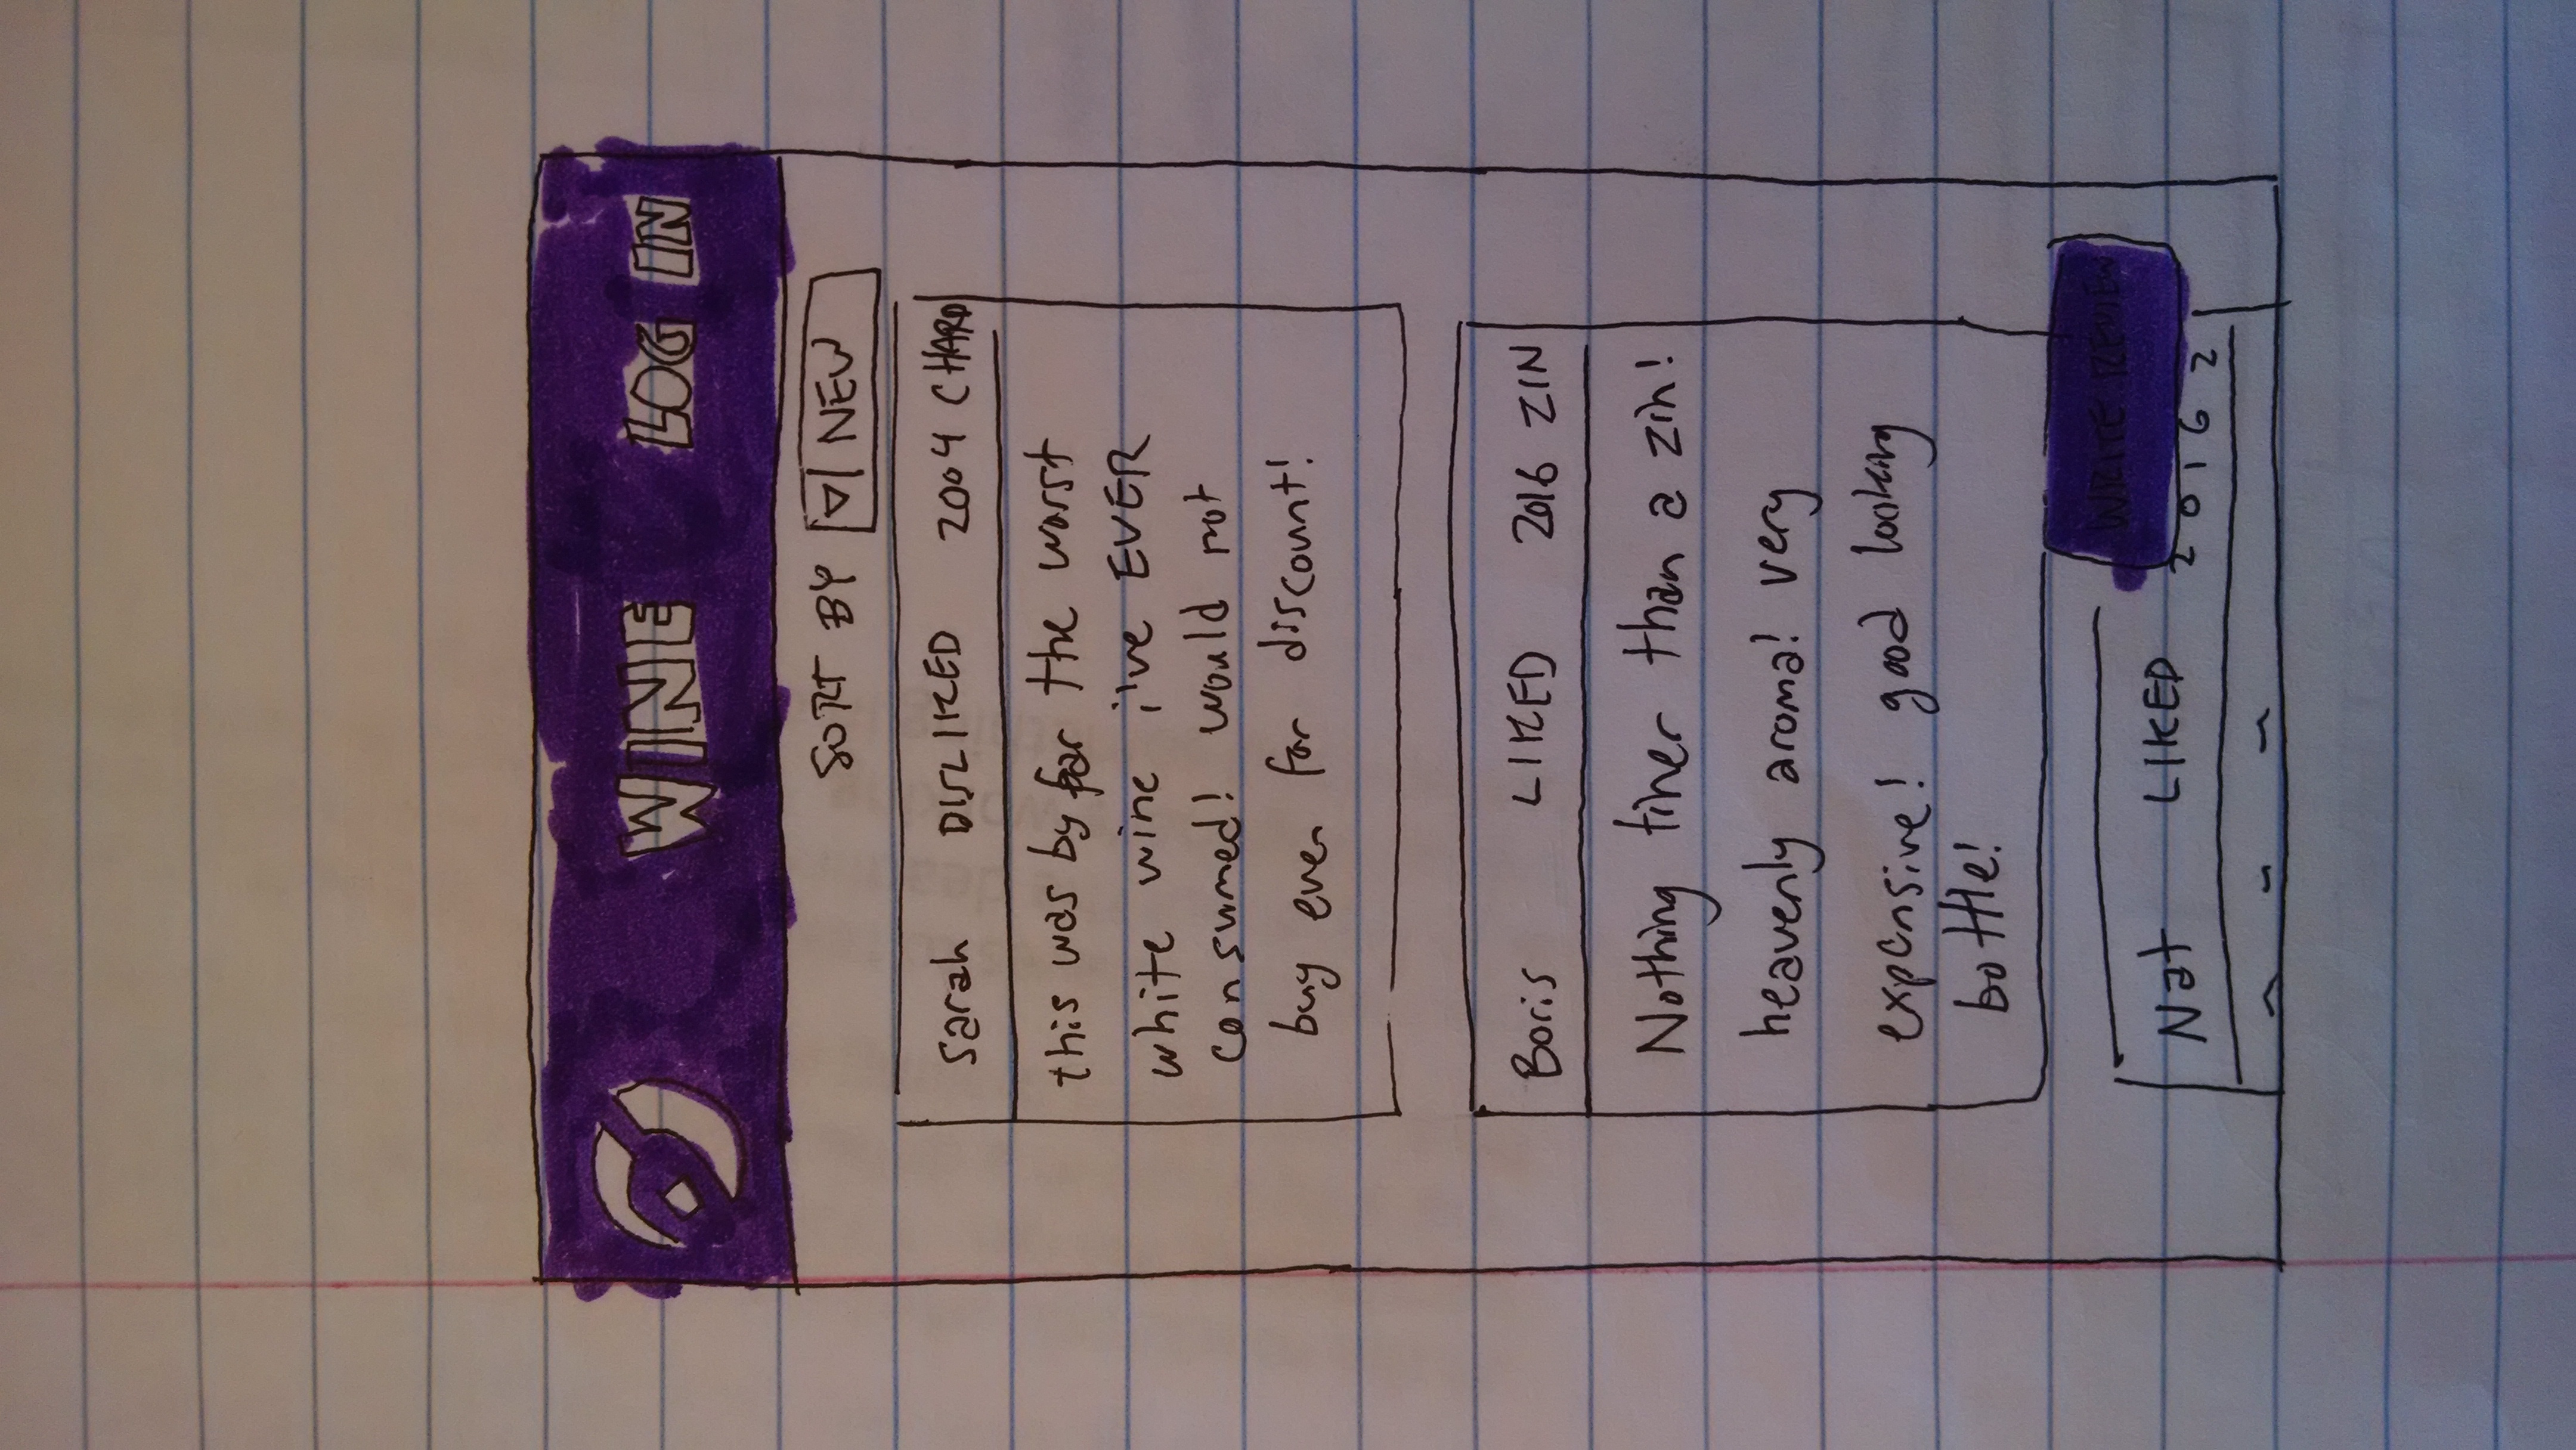 WINE LOG IN
SORT BY NEW
Sarah DISLIKED 2004 CHARD
this was by far the worst
white wine i've EVER
consumed! would not
buy even for discount!
Boris LIKED 2016 ZIN
Nothing finer than a zin!
heavenly aroma! very
expensive! good looking
bottle!
WRITE REVIEW
Nat LIKED 2016 Z